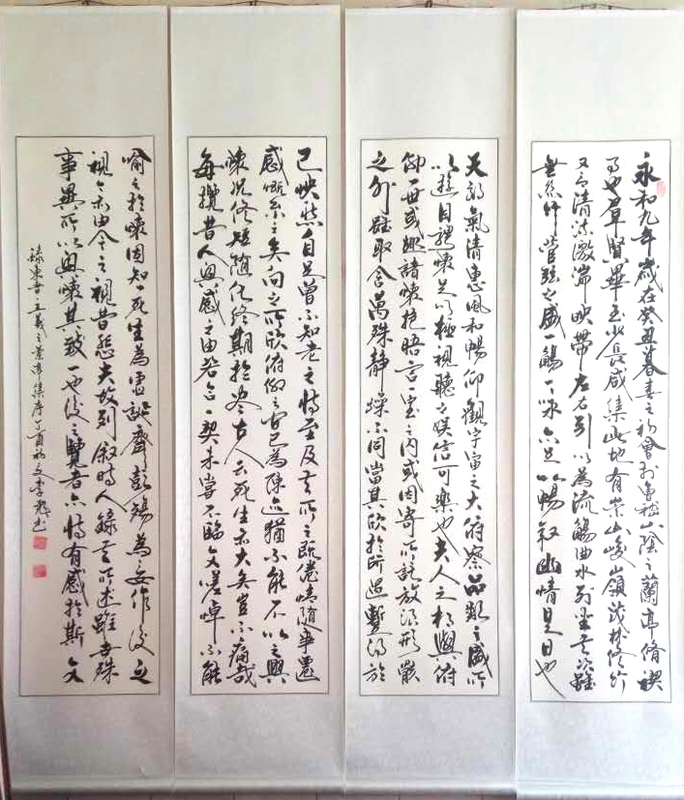 永和九年歲在癸丑暮春之初會於會稽山陰之蘭亭脩禊
事也群賢畢至少長咸集此地有崇山峻嶺茂林修竹
又有清流激湍映帶左右引以為流觴曲水列坐其次雖
無絲竹管弦之盛一觴一詠亦足以暢敘幽情是日也
天朗氣清惠風和暢仰觀宇宙之大俯察品類之盛所
以遊目騁懷足以極視聽之娛信可樂也夫人之相與俯
仰一世或趣諸懷抱晤言一室之內或因寄所託放浪形骸
之外雖取舍萬殊靜躁不同當其欣於所遇暫得於
己快然自足曾不知老之將至及其所之既倦情隨事遷
感慨系之矣向之所欣俯仰之間已為陳迹猶不能不以之興
懷況修短隨化終期於盡古人云死生亦大矣豈不痛哉
每攬昔人興感之由若合一契未嘗不臨文嗟悼不能
喻之於懷固知一死生為虛誕齊彭殤為妄作後之
視今亦由今之視昔悲夫故列敘時人錄其所述雖世殊
事異所以興懷其致一也後之覽者亦將有感於斯文
錄東晉王羲之蘭亭集序丁酉秋